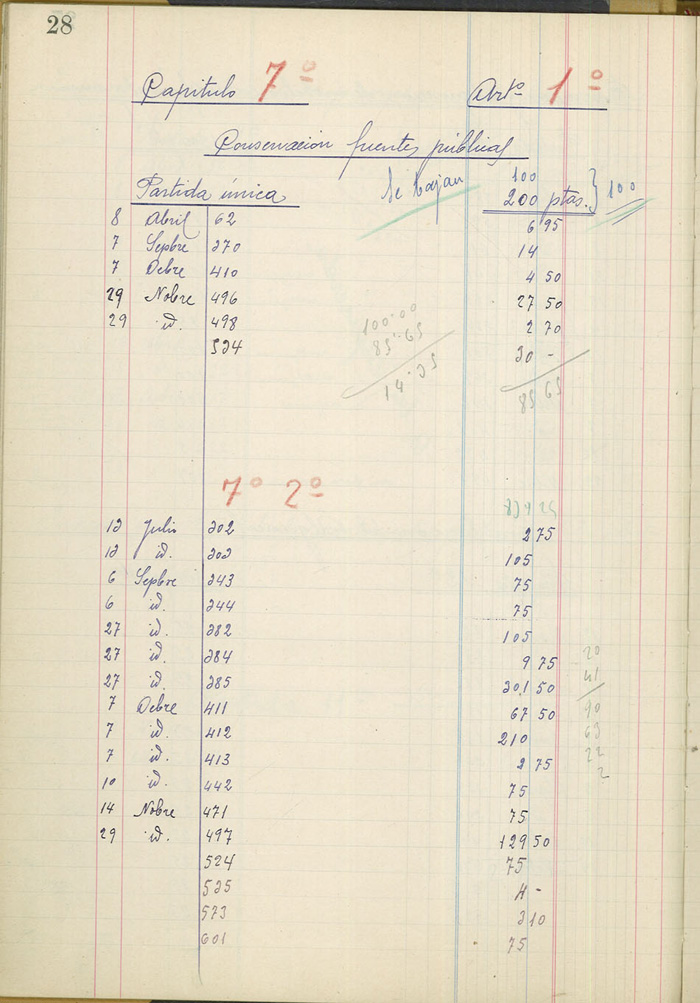 28
Capitulo 7º Artº 1º
Conservación fuentes públicas
100
Partida única Se bajan 200 ptas. } 100
8 Abril 62 6 95
7 Sepbre 270 14
7 Ocbre 410 4 50
29 Nobre 496 27 50
29 id. 498 2 70
534 30 -
100·00
85·65
14·35
85 65
7º 2º
12 Julio 202 2 75
12 id. 203 105
6 Sepbre 243 75
6 id. 244 75
27 id. 282 105
27 id. 284 9 75
27 id. 285 301 50
7 Ocbre 411 67 50
7 id. 412 210
7 id. 413 2 75
10 id. 442 75
14 Nobre 471 75
29 id. 497 129 50
524 75
535 4 -
573 310
601 75
20
41
10
69
22
2